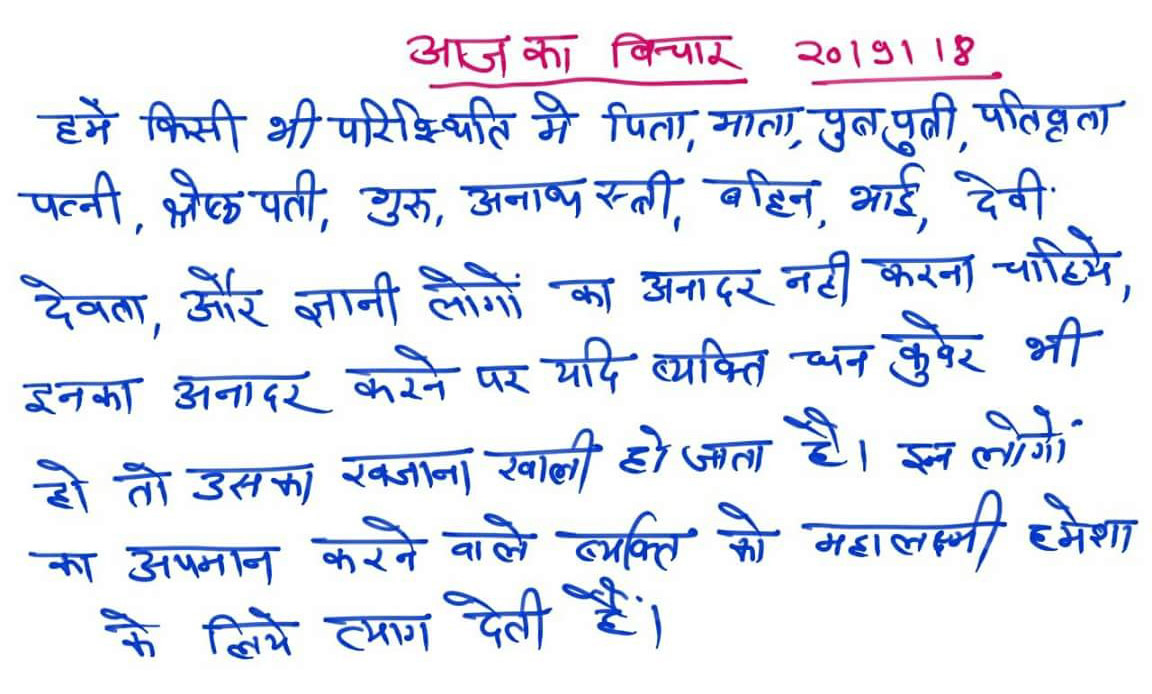 आज का विचार 20।9।18
हमें किसी भी परिस्थिति मे पिता, माता, पुत्र,पुत्री, पतिव्रता
पत्नी, श्रेष्ठ पती, गुरु, अनाथ स्त्री, बहिन, भाई, देवी
देवता, और ज्ञानी लोगों का अनादर नही करना चाहिये,
इनका अनादर करने पर यदि व्यक्ति धन कुवेर भी
हो तो उसका खजाना खाली हो जाता है। इन लोगों
का अपमान करने वाले व्यक्ति को महालक्ष्मी हमेशा
के लिये त्याग देती हैं।